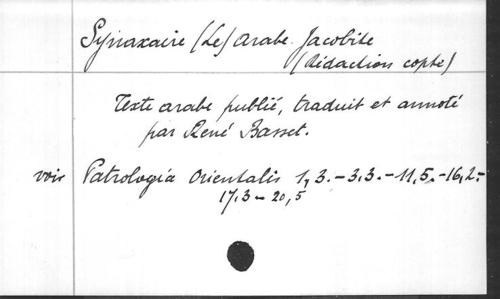 Synaxaire (Le) arabe Jacobite
(Rédaction copte)
Texte arabe publié, traduit et annoté
par René Basset.
voir Patrologia Orientalis 1,3.-3,3.-11,5.-16,2.-
17,3-20,5